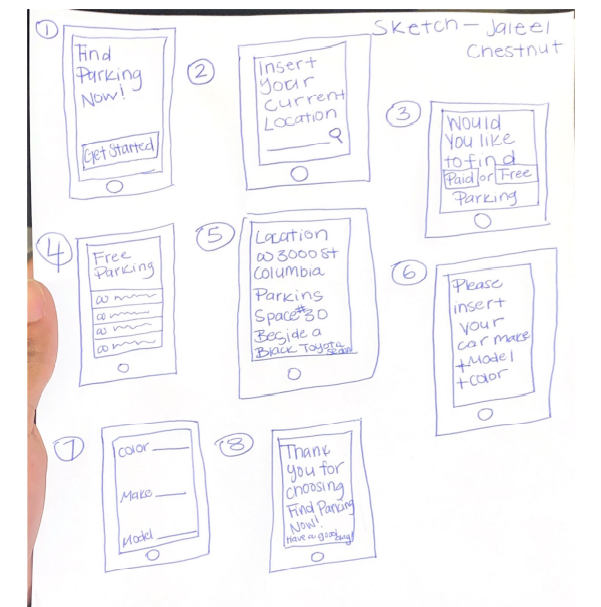 Sketch - Jaleel
Chestnut
1
Find
Parking
Now!
Get Started
2
Insert
Your
Current
Location
3
Would
You like
to find
Paid or Free
Parking
4
Free
Parking
5
Location
@ 3000 St
Columbia
Parking
Space #30
Beside a
Black Toyota
Sedan
6
Please
insert
your
car make
+Model
+color
7
Color
Make
Model
8
Thank
you for
choosing
Find Parking
Now!
Have a good day!